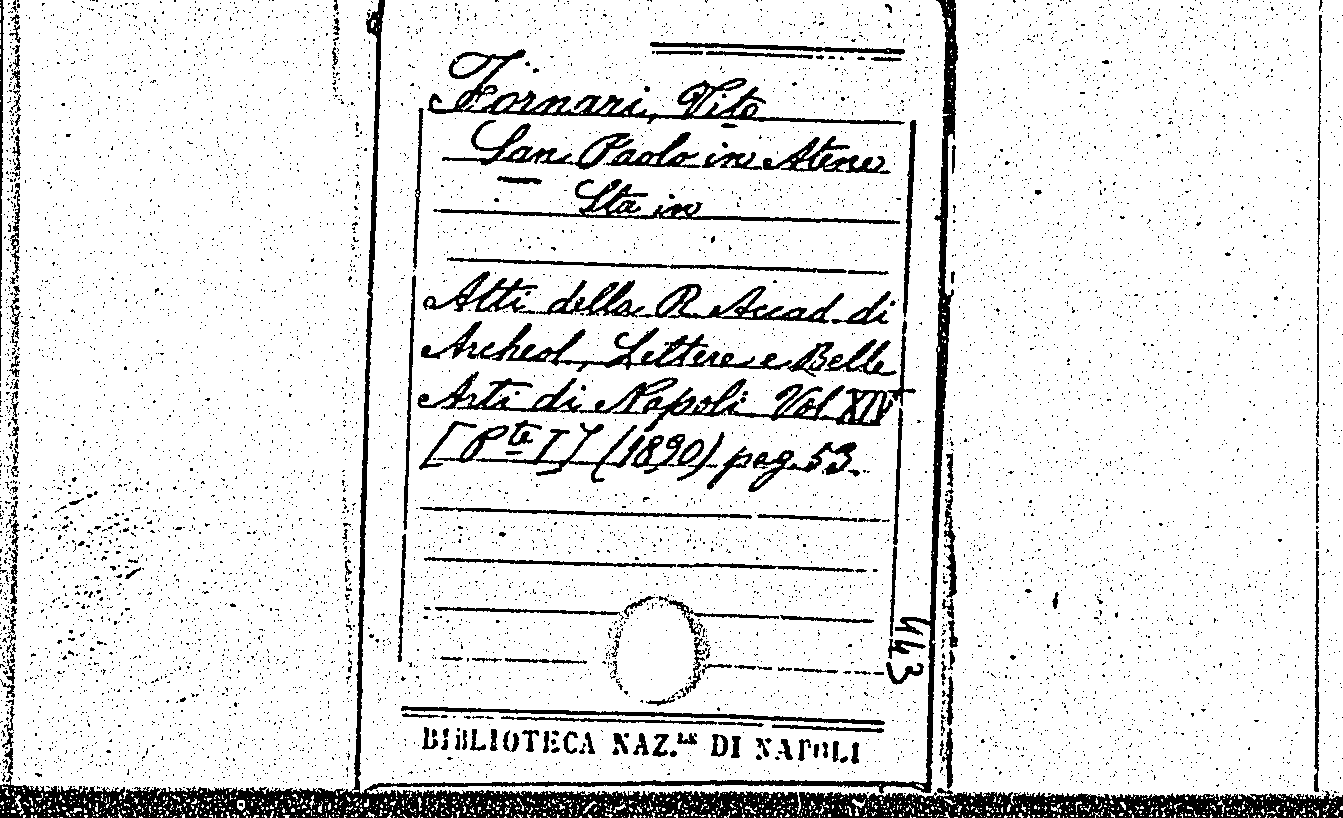 Fornari, Vito
San Paolo in Atene
Sta in
Atti della R. Accad. di
Archeol., Lettere e Belle
Arti di Napoli Vol XIV
[Pte I] (1890) pag. 53.
443
BIBLIOTECA NAZ.LE DI NAPOLI